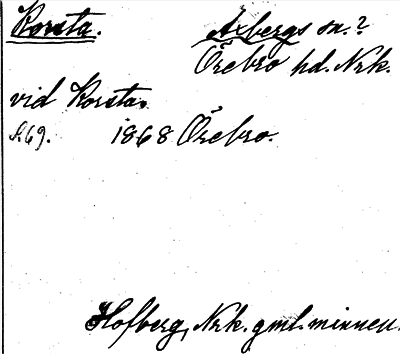 Korsta. Axbergs sn.?
Örebro hd. Nrk.
vid Korsta.
s. 69. 1868 Örebro.
Hofberg, Nrk. gml. minnen.